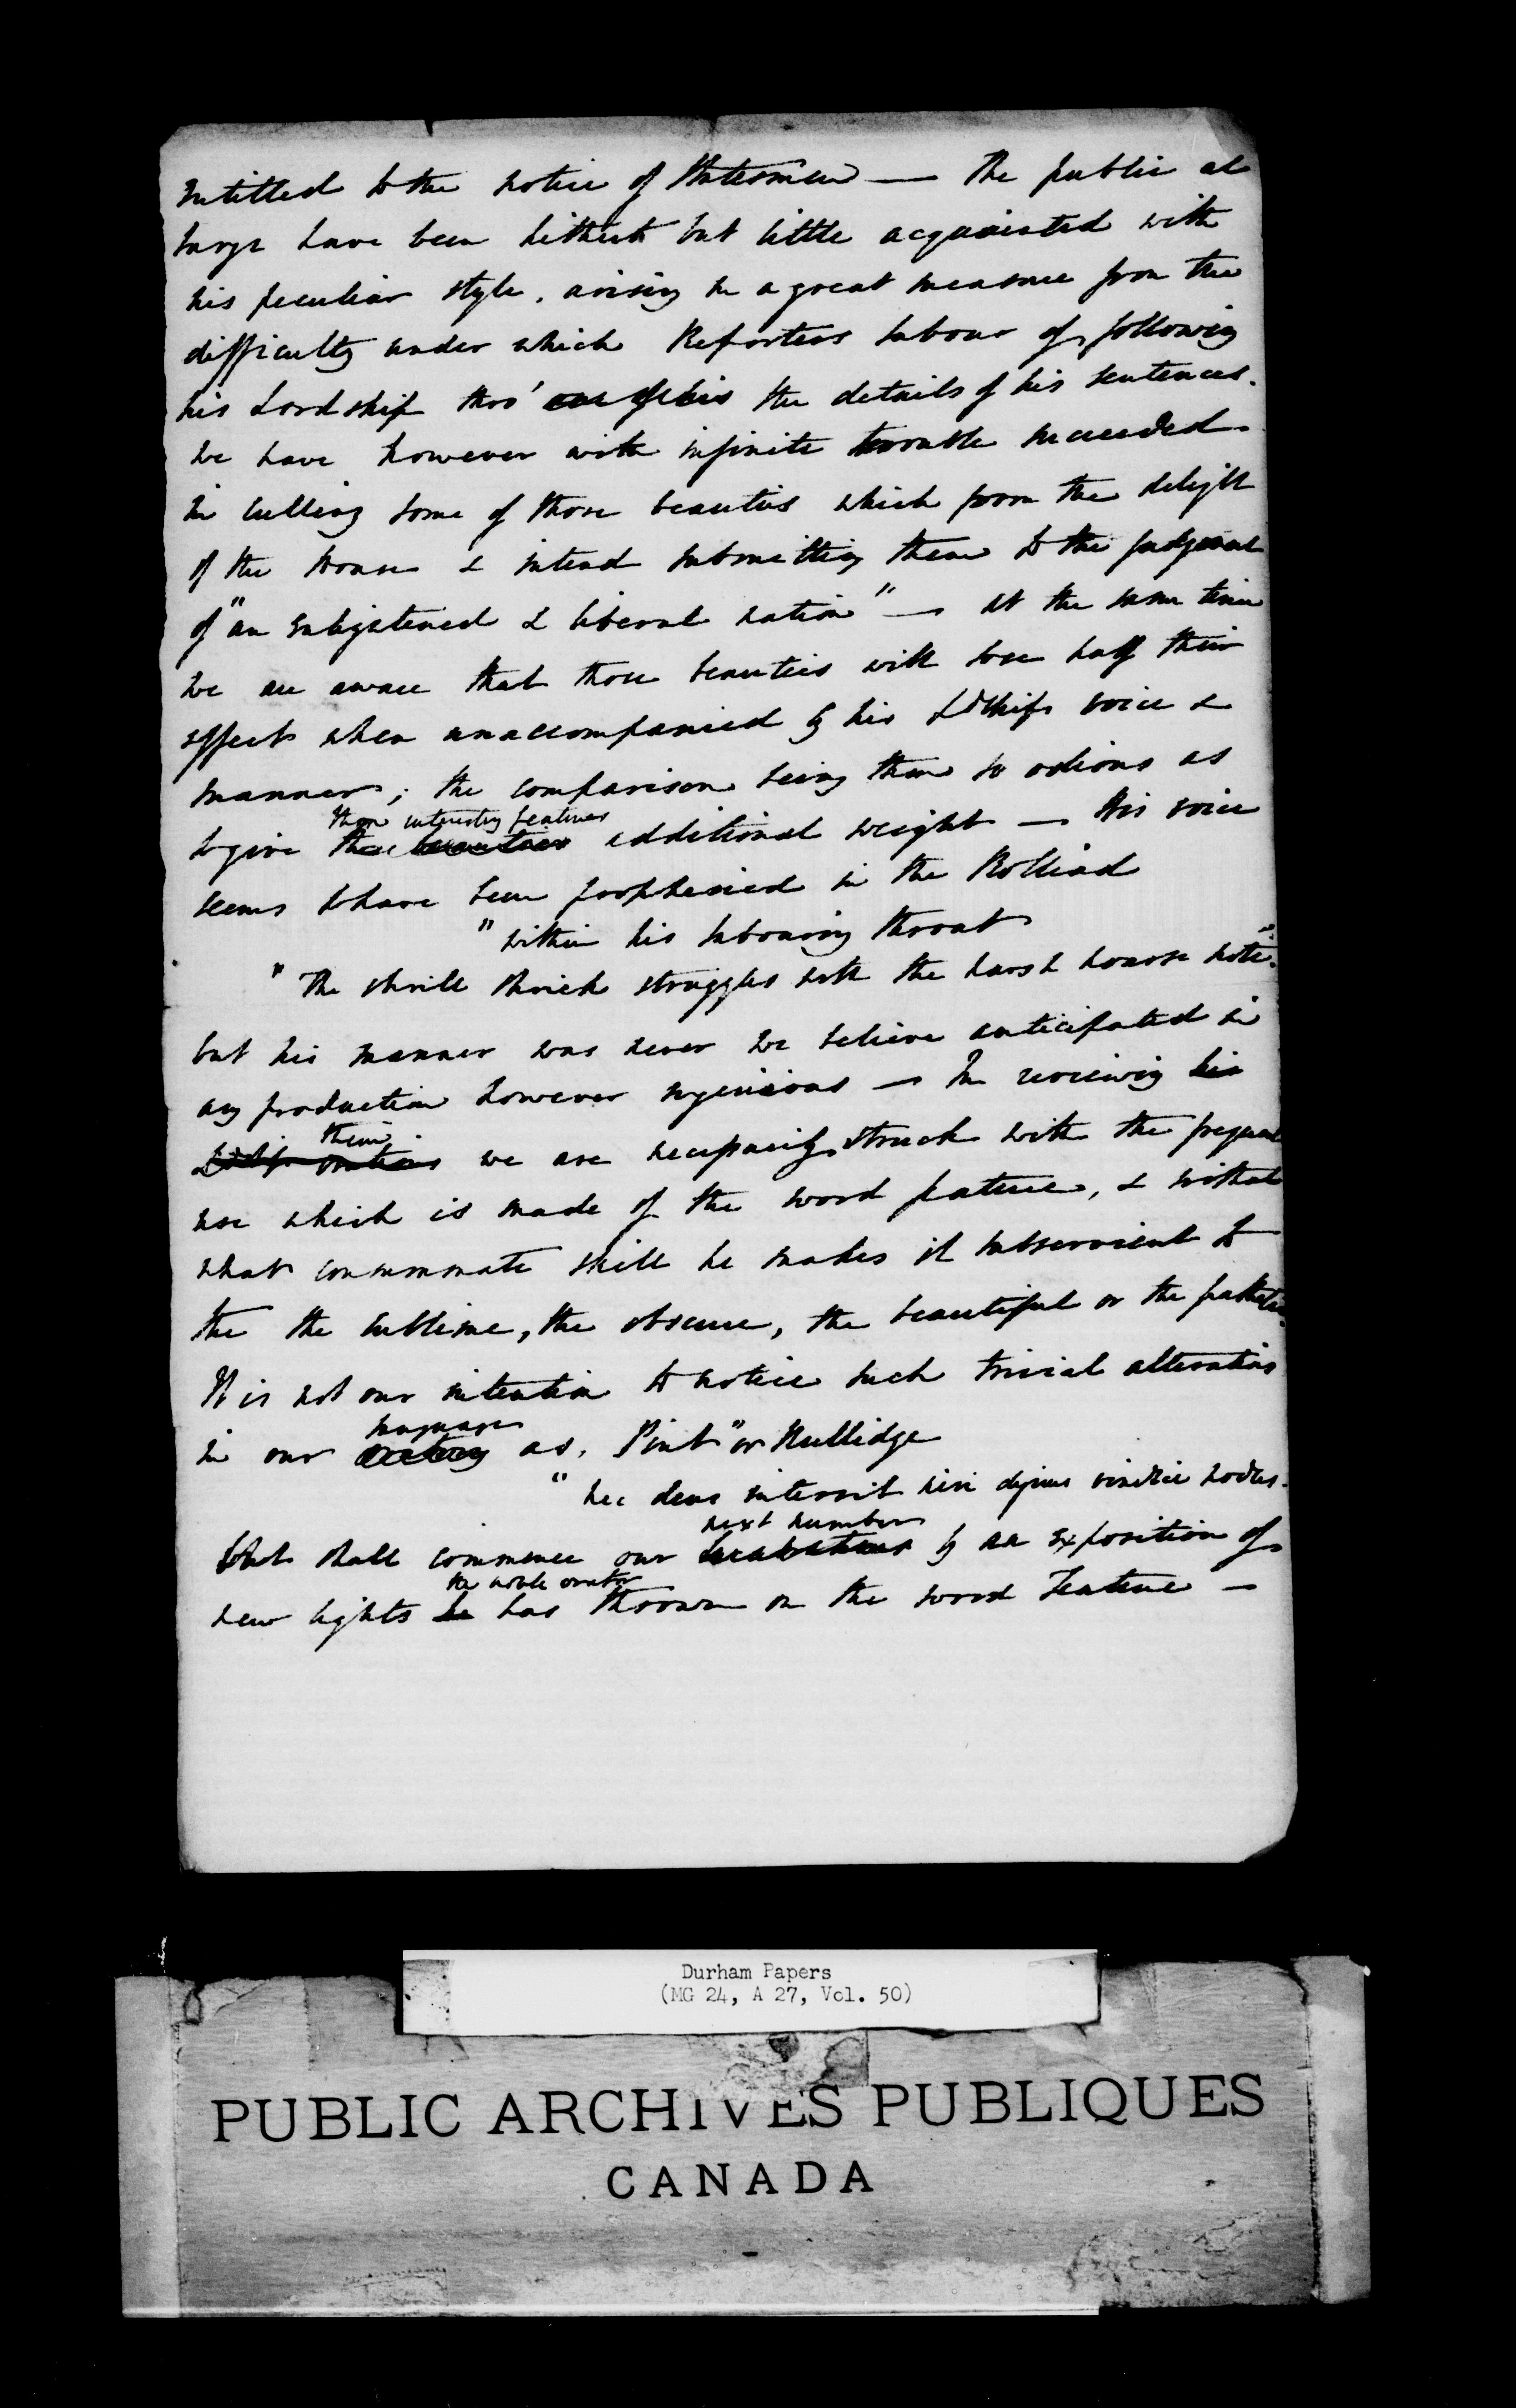 entitled to the notice of Statesmen — The public at
large have been hitherto but little acquainted with
his peculiar style, arising in a great measure from the
difficulty under which Reporters labour of following
his Lordship thro' the details of his sentences.
We have however with infinite trouble succeeded
in culling some of those beauties which form the delight
of the House & intend submitting them to the judgment
of "an enlightened & liberal nation" — At the same time
we are aware that those beauties will lose half their
effect when unaccompanied by his Ldships voice &
manner; the comparison being then so odious as
those interesting features
to give the beauties additional weight — His voice
seems to have been prophesied in the Rolliad
"Within his labouring throat
"The shrill shriek struggles with the harsh hoarse note".
but his manner was never we believe anticipated in
any production however ingenious — In reviewing his
them
Ldships orations we are necessarily struck with the frequent
use which is made of the word feature, & with
what consummate skill he makes it subservient to
the the sublime, the obscure, the beautiful or the pathetic.
It is not our intention to notice such trivial alterations
language
in our oratory as, Pint" or Nullidge
"nec deus intersit nisi dignus vindice nodus.
but shall commence our lucubrations by an exposition of
next number
the noble orator
new lights he has thrown on the word Feature —
Durham Papers
(MG 24, A 27, Vol. 50)
PUBLIC ARCHIVES PUBLIQUES
CANADA